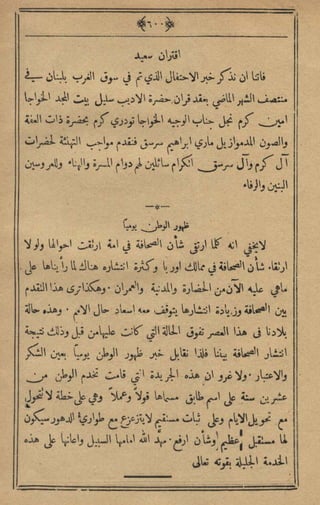 ﴿٦٠٠﴾
اقتران سعيد
فاتنا ان نذكر خبر الاحتفال الذي تم في سوق الغرب بلبنان في
منتصف الشهر الماضي بعقد قران حضرة الاديب سليل بيت المجد الخواجا
امين كرم نجل جناب الوجيه الخواجا تودري كرم بحضرة ذات العفة
والصون المدموازيل ماري ابراهيم سرسق فنقدم مواجب التهنئة لحضرات
آل كرم وآل سرسق الكرام سائلين لهم دوام المسرة والهناء وللعروسين
البنين والرفاء
ظهور الوطن يوميا
لا يخفى انه كلما ارتقى شأن الصحافة في امة ارتقت احوالها ولولا
ارتقاء شأن الصحافة في ممالك اوربا وكثرة انتشاره هناك لما رأيناها على
ماهي عليه الآن من الحضارة والمدنية والعمران. وهكذا ترى هذا التقدم
بين الصحافة وزيادة انتشارها يتوقف معه اسعاد حال الامم. وهذه حالة
بلادنا في هذا العصر تفوق الحالة التي كانت عليها من قبل وذلك نتيجة
انتشار الصحافة بيننا فلذا نقابل خبر ظهور الوطن يوميا بعين الشكر
والاعتبار. ولا غرو ان هذه الجريدة التي قامت تخدم الوطن من
عشرين سنة على اسم طابق مسماها قولاً وعملاً وهي على خطة لا تتحول
مع تحويل الايام وعلى ثبات مستقيم لا يتزعزع مع طوارئ الدهور سيكون
لها مستقبل عظيم وشأن ارفع. مهد الله امامها السبيل واعانها على هذه
الخدمة الجليلة بقوته تعالى